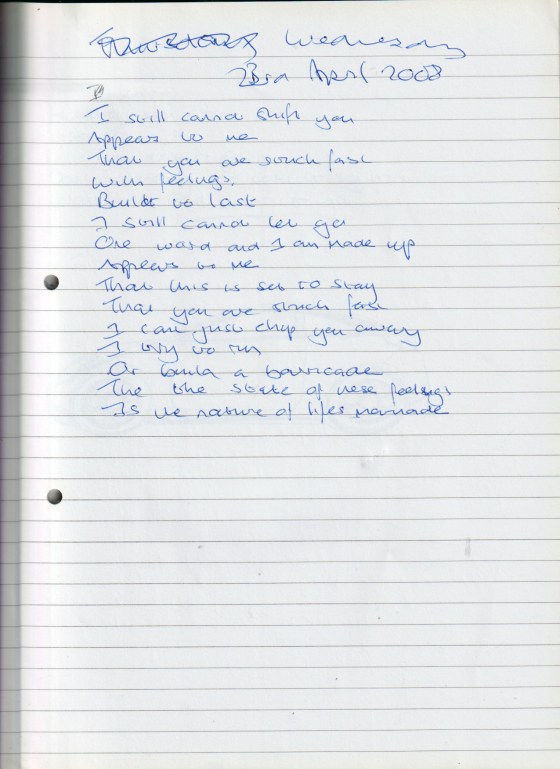 Thursday Wednesday
23rd April 2008
I
I still cannot shift you
Appears to me
That you are stuch fast
With feelings.
Built to last
I still cannot let go
One word and I am made up
Appears to me
That this is set to stay
That you are stuch fast
I cant just chop you away
I try to run
Or build a barricade
The the state of these feelings
Is the nature of lifes